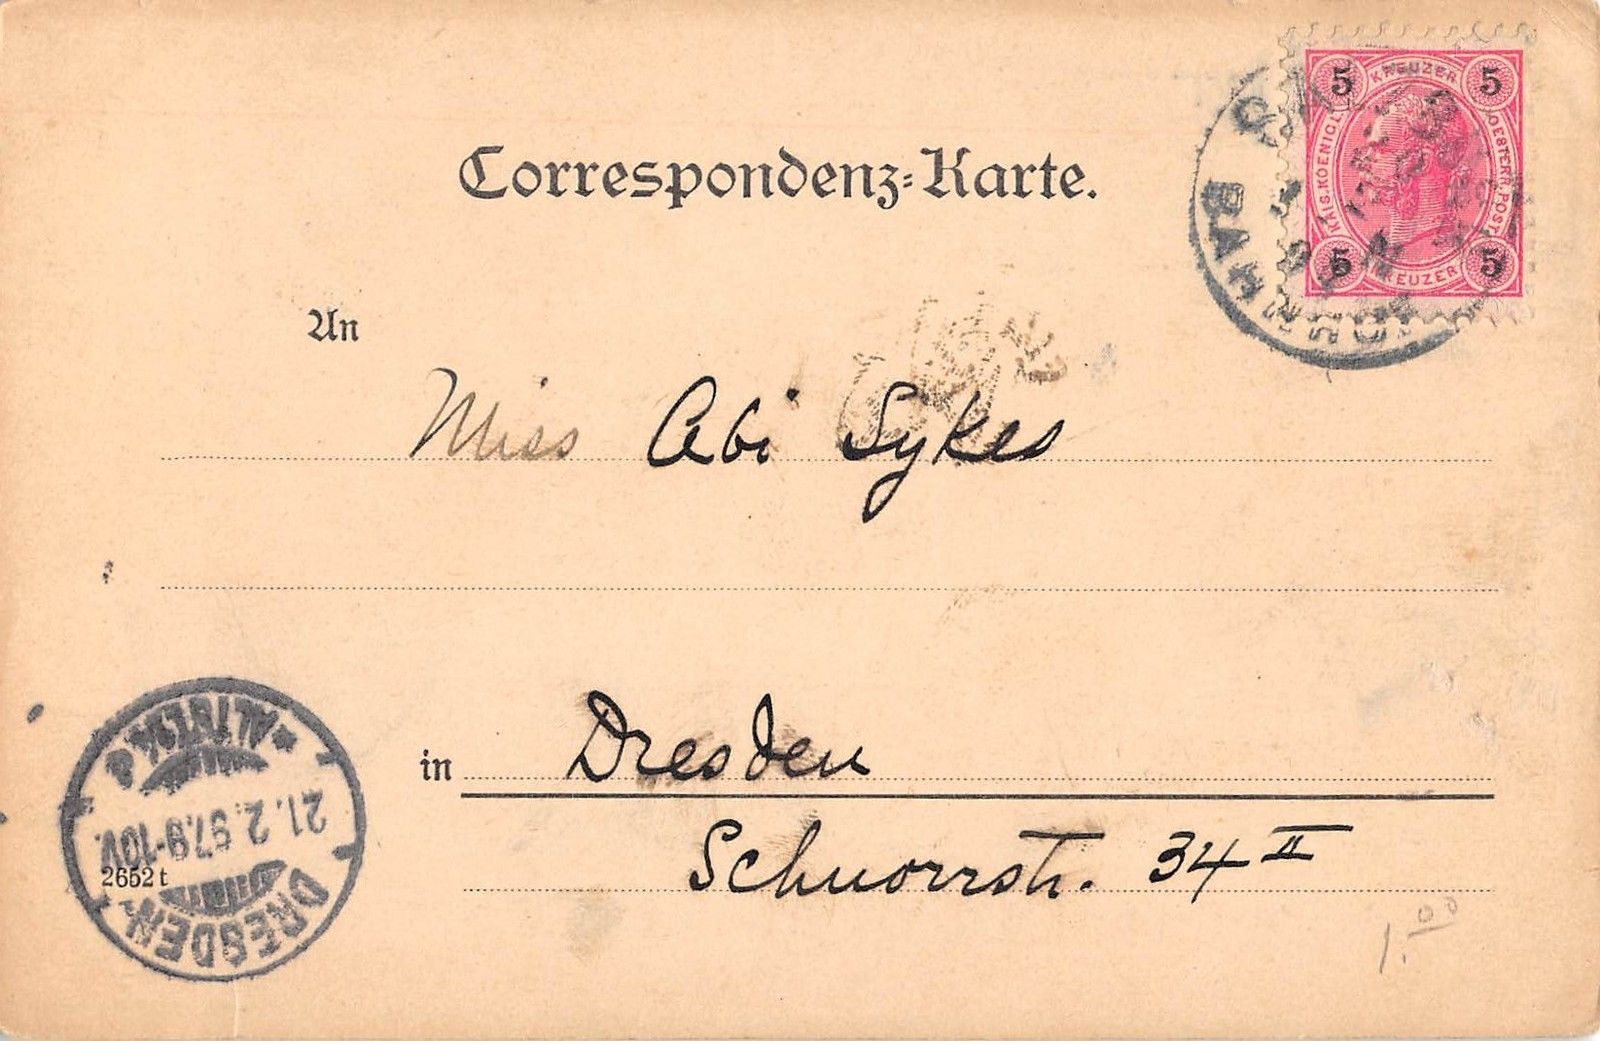 5 KREUZER 5
KAIS. KOENIGL. OESTERR. POST
5 KREUZER 5
BAHNHOF
Correspondenz-Karte.
An
Miss Abi Sykes
in Dresden
Schnorrstr. 34 II
DRESDEN
ALTST.
21.2.97.9-10V.
2652 t
1.00